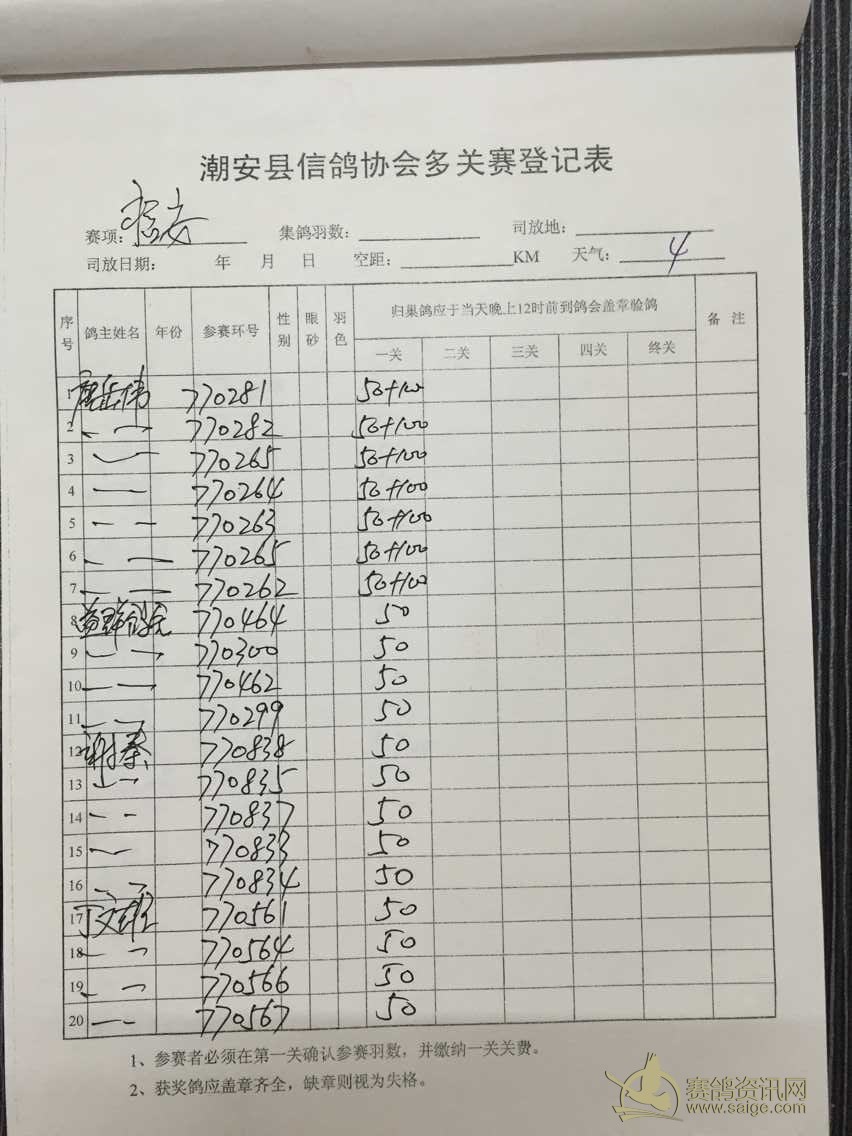 潮安县信鸽协会多关赛登记表
赛项: 集鸽羽数: 司放地:
司放日期: 年 月 日 空距: KM 天气: 4
序号 鸽主姓名 年份 参赛环号 性别 眼砂 羽色 归巢鸽应于当天晚上12时前到鸽会盖章验鸽 备注
一关 二关 三关 四关 终关
1 770281 50+100
2 770282 50+100
3 770265 50+100
4 770264 50+100
5 770263 50+100
6 770265 50+100
7 770262 50+100
8 770464 50
9 770300 50
10 770462 50
11 770299 50
12 谢泰 770838 50
13 770835 50
14 770837 50
15 770833 50
16 770834 50
17 丁文雄 770561 50
18 770564 50
19 770566 50
20 770567 50
1、参赛者必须在第一关确认参赛羽数，并缴纳一关关费。
2、获奖鸽应盖章齐全，缺章则视为失格。
赛鸽资讯网
www.saige.com